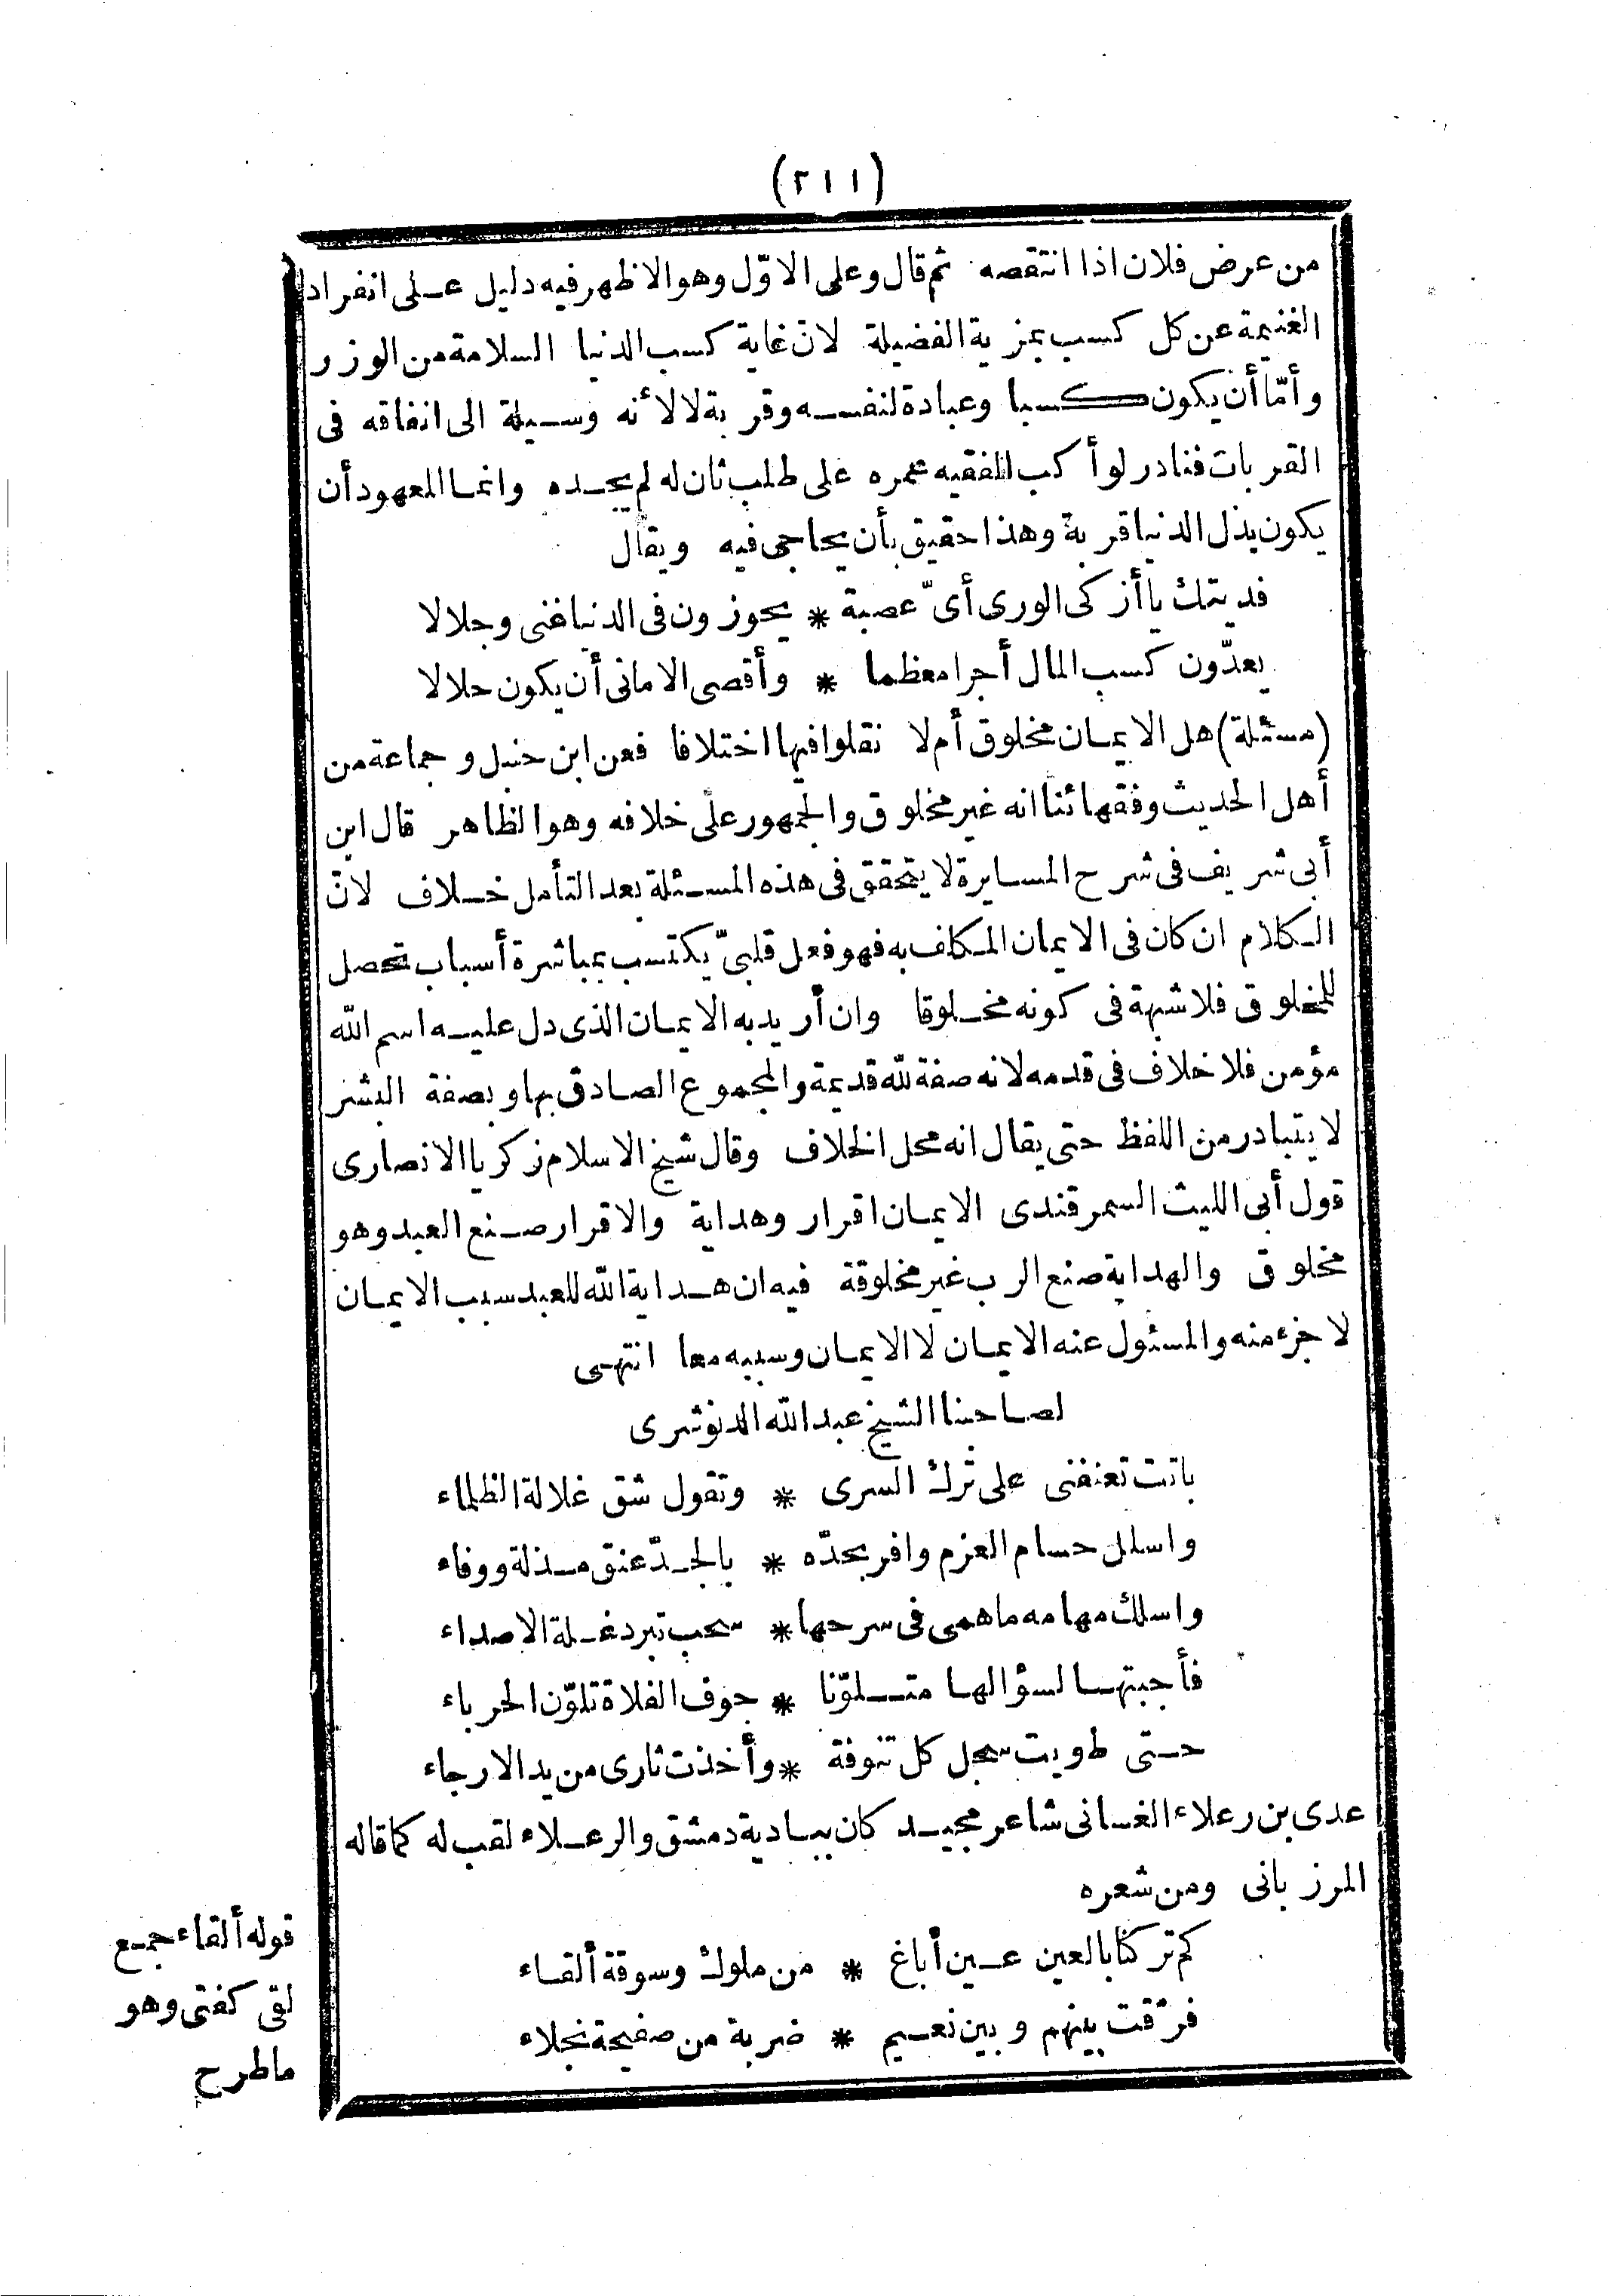 (٢١١)
من عرض فلان اذا انتقصه ثم قال وعلى الاوّل وهو الاظهر فيه دليل على انفراد
الغنيمة عن كل كسب بمزية الفضيلة لانّ غاية كسب الدنيا السلامة من الوزر
وأمّا أن يكون كسبا وعبادة لنفسه وقربة لا لأنه وسيلة الى انفاقه فى
القربات فنادر لو أكب الفقيه عمره على طلب ثان له لم يجده وانما المعهود أن
يكون بذل الدنيا قربة وهذا حقيق بأن يحاجى فيه ويقال
فديتك يا أزكى الورى أىّ عصبة * يحوزون فى الدنيا غنى وجلالا
يعدّون كسب المال أجرا معظما * وأقصى الامانى أن يكون حلالا
(مسئلة) هل الايمان مخلوق أم لا نقلوا فيها اختلافا فعن ابن حنبل وجماعة من
أهل الحديث وفقهائنا انه غير مخلوق والجمهور على خلافه وهو الظاهر قال ابن
أبى شريف فى شرح المسايرة لا يتحقق فى هذه المسئلة بعد التأمل خلاف لانّ
الكلام ان كان فى الايمان المكلف به فهو فعل قلبىّ يكتسب بمباشرة أسباب تحصل
للمخلوق فلا شبهة فى كونه مخلوقا وان أريد به الايمان الذى دل عليه اسم الله
مؤمن فلا خلاف فى قدمه لانه صفة لله قديمة والمجموع الصادق بها وبصفة البشر
لا يتبادر من اللفظ حتى يقال انه محل الخلاف وقال شيخ الاسلام زكريا الانصارى
قول أبى الليث السمرقندى الايمان اقرار وهداية والاقرار صنع العبد وهو
مخلوق والهداية صنع الرب غير مخلوقة فيه ان هداية الله للعبد سبب الايمان
لا جزء منه والمسئول عنه الايمان لا الايمان وسببه معا انتهى
لصاحبنا الشيخ عبد الله الدنوشرى
باتت تعنفنى على ترك السرى * وتقول شق غلالة الظلماء
واسلل حسام العزم وافر بحدّه * بالجدّ عنق مذلة ووفاء
واسلك مهامه ماهمى فى سرحها * سحب تبرد غلة الاصداء
فأجبتها لسؤالها متلوّنا * جوف الفلاة تلوّن الحرباء
حتى طويت سجل كل تنوفة * وأخذت ثارى من يد الارجاء
عدى بن رعلاء الغسانى شاعر مجيد كان ببادية دمشق والرعلاء لقب له كما قاله
المرزبانى ومن شعره
كم تركنا بالعين عين أباغ * من ملوك وسوقة ألقاء
فرّقت بينهم وبين نعيم * ضربة من صفيحة نجلاء
قوله ألقاء جمع
لقى كفتى وهو
ما طرح